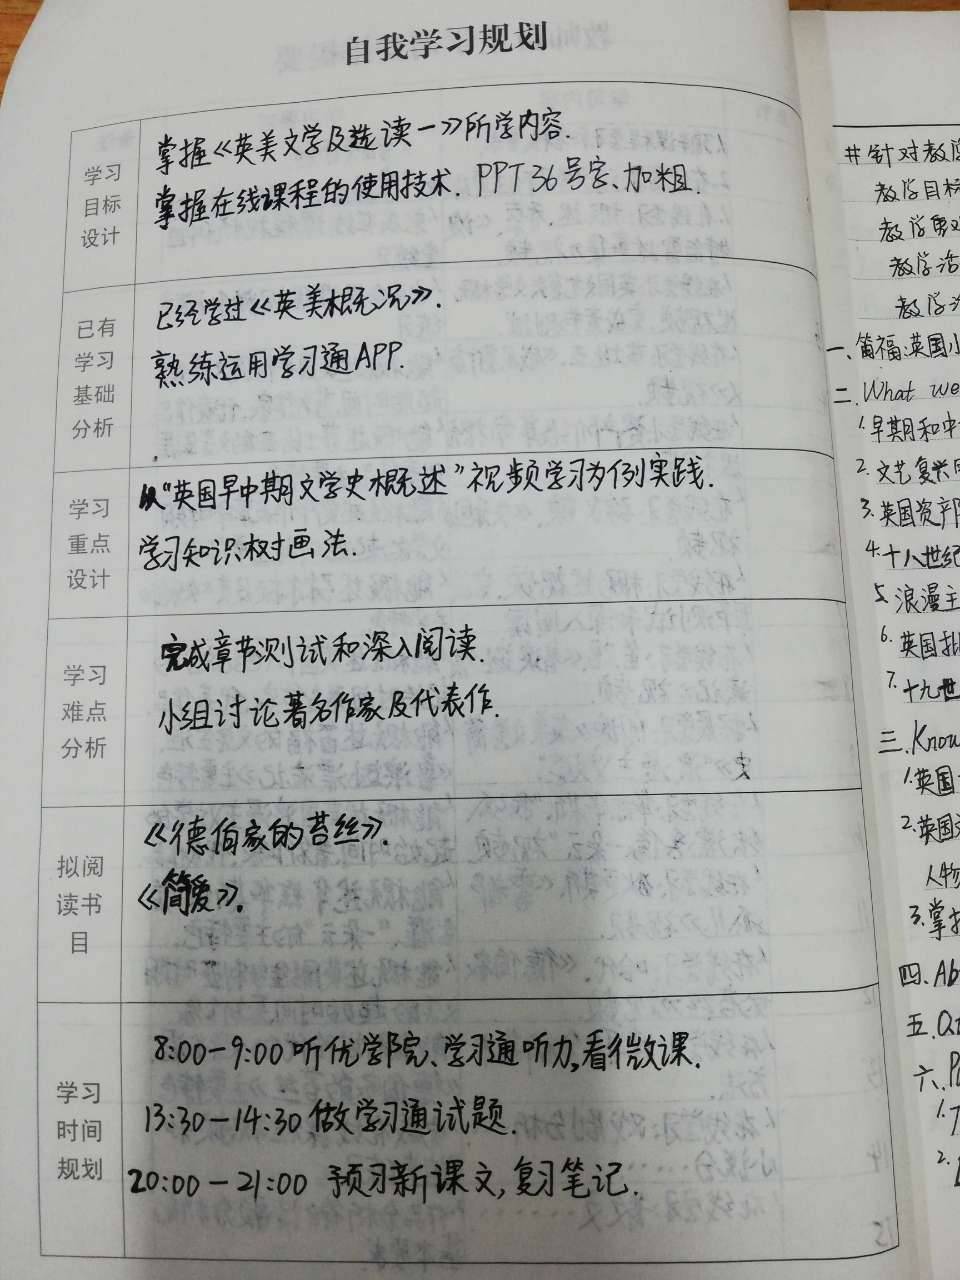 自我学习规划
学习
目标
设计
掌握《英美文学及选读一》所学内容.
掌握在线课程的使用技术. PPT36号字、加粗.
已有
学习
基础
分析
已经学过《英美概况》.
熟练运用学习通APP.
学习
重点
设计
从“英国早中期文学史概述”视频学习为例实践.
学习知识树画法.
学习
难点
分析
完成章节测试和深入阅读.
小组讨论著名作家及代表作.
拟阅
读书
目
《德伯家的苔丝》.
《简爱》.
学习
时间
规划
8:00-9:00 听优学院、学习通听力,看微课.
13:30-14:30 做学习通试题.
20:00-21:00 预习新课文,复习笔记.
#针对教学
教学目标
教学
教学活
教学
一、笛福:英国小
二.What we
1.早期和中
2.文艺复兴
3.英国资产阶
4.十八世纪
5.浪漫主
6.英国批
7.十九世
三.Know
1.英国
2.英国
人物
3.掌握
四.Ab
五.
六.
1.
2.